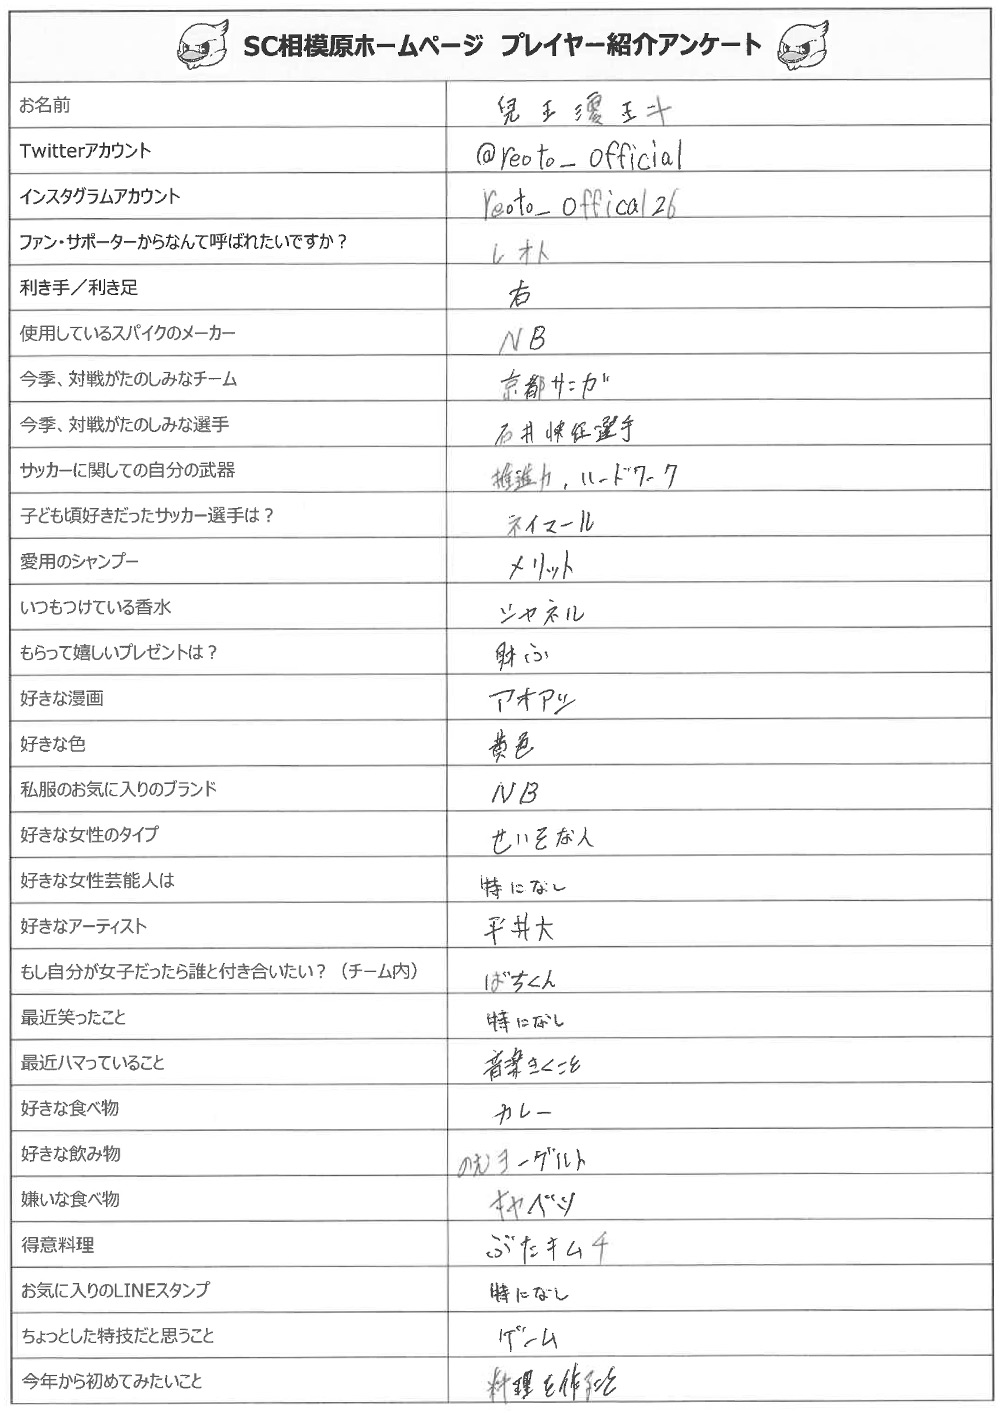 SC相模原ホームページ プレイヤー紹介アンケート
お名前 兒玉澪王斗
Twitterアカウント @reoto_official
インスタグラムアカウント reoto_offical26
ファン・サポーターからなんて呼ばれたいですか？ レオト
利き手／利き足 右
使用しているスパイクのメーカー NB
今季、対戦がたのしみなチーム 京都サンガ
今季、対戦がたのしみな選手 石井快征選手
サッカーに関しての自分の武器 推進力，ハードワーク
子ども頃好きだったサッカー選手は？ ネイマール
愛用のシャンプー メリット
いつもつけている香水 シャネル
もらって嬉しいプレゼントは？ 財ふ
好きな漫画 アオアシ
好きな色 黄色
私服のお気に入りのブランド NB
好きな女性のタイプ せいそな人
好きな女性芸能人は 特になし
好きなアーティスト 平井大
もし自分が女子だったら誰と付き合いたい？（チーム内） ばちくん
最近笑ったこと 特になし
最近ハマっていること 音楽きくこと
好きな食べ物 カレー
好きな飲み物 のむヨーグルト
嫌いな食べ物 キャベツ
得意料理 ぶたキムチ
お気に入りのLINEスタンプ 特になし
ちょっとした特技だと思うこと ゲーム
今年から初めてみたいこと 料理を作ること